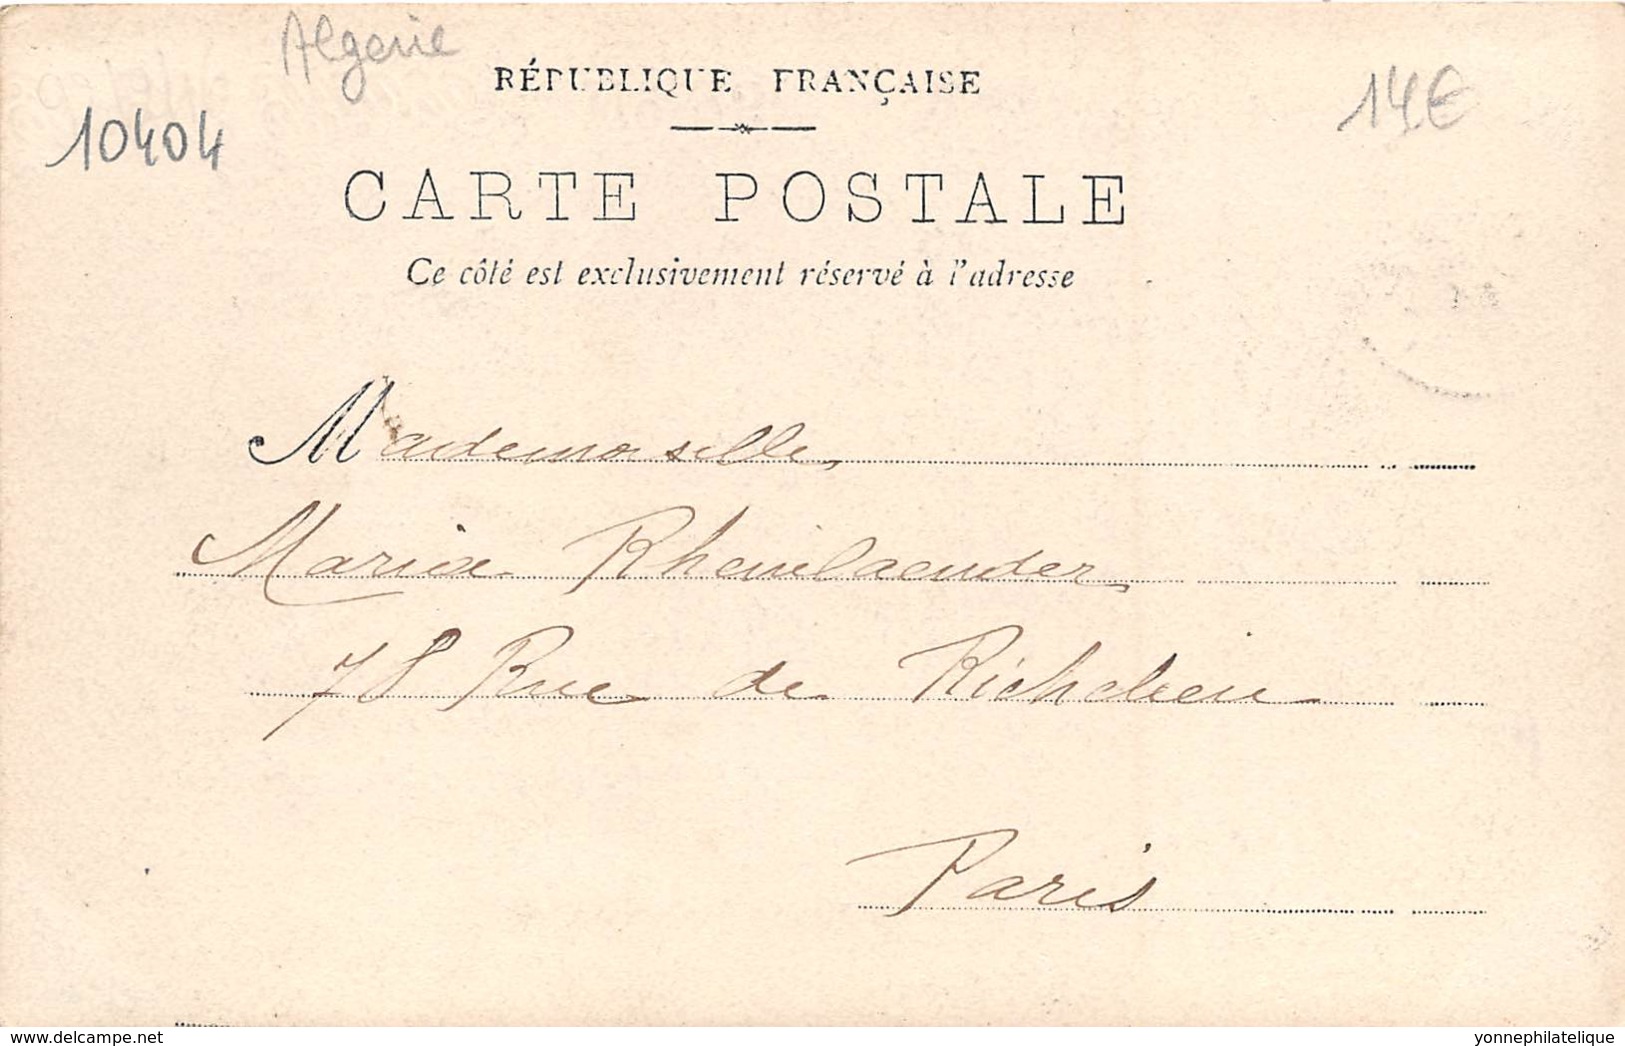 Algerie
RÉPUBLIQUE FRANÇAISE
10404
14€
CARTE POSTALE
Ce côté est exclusivement réservé à l'adresse
Mademoiselle
Maria Rheinlaender
78 Rue de Richelieu
Paris
www.delcampe.net
yonnephilatelique